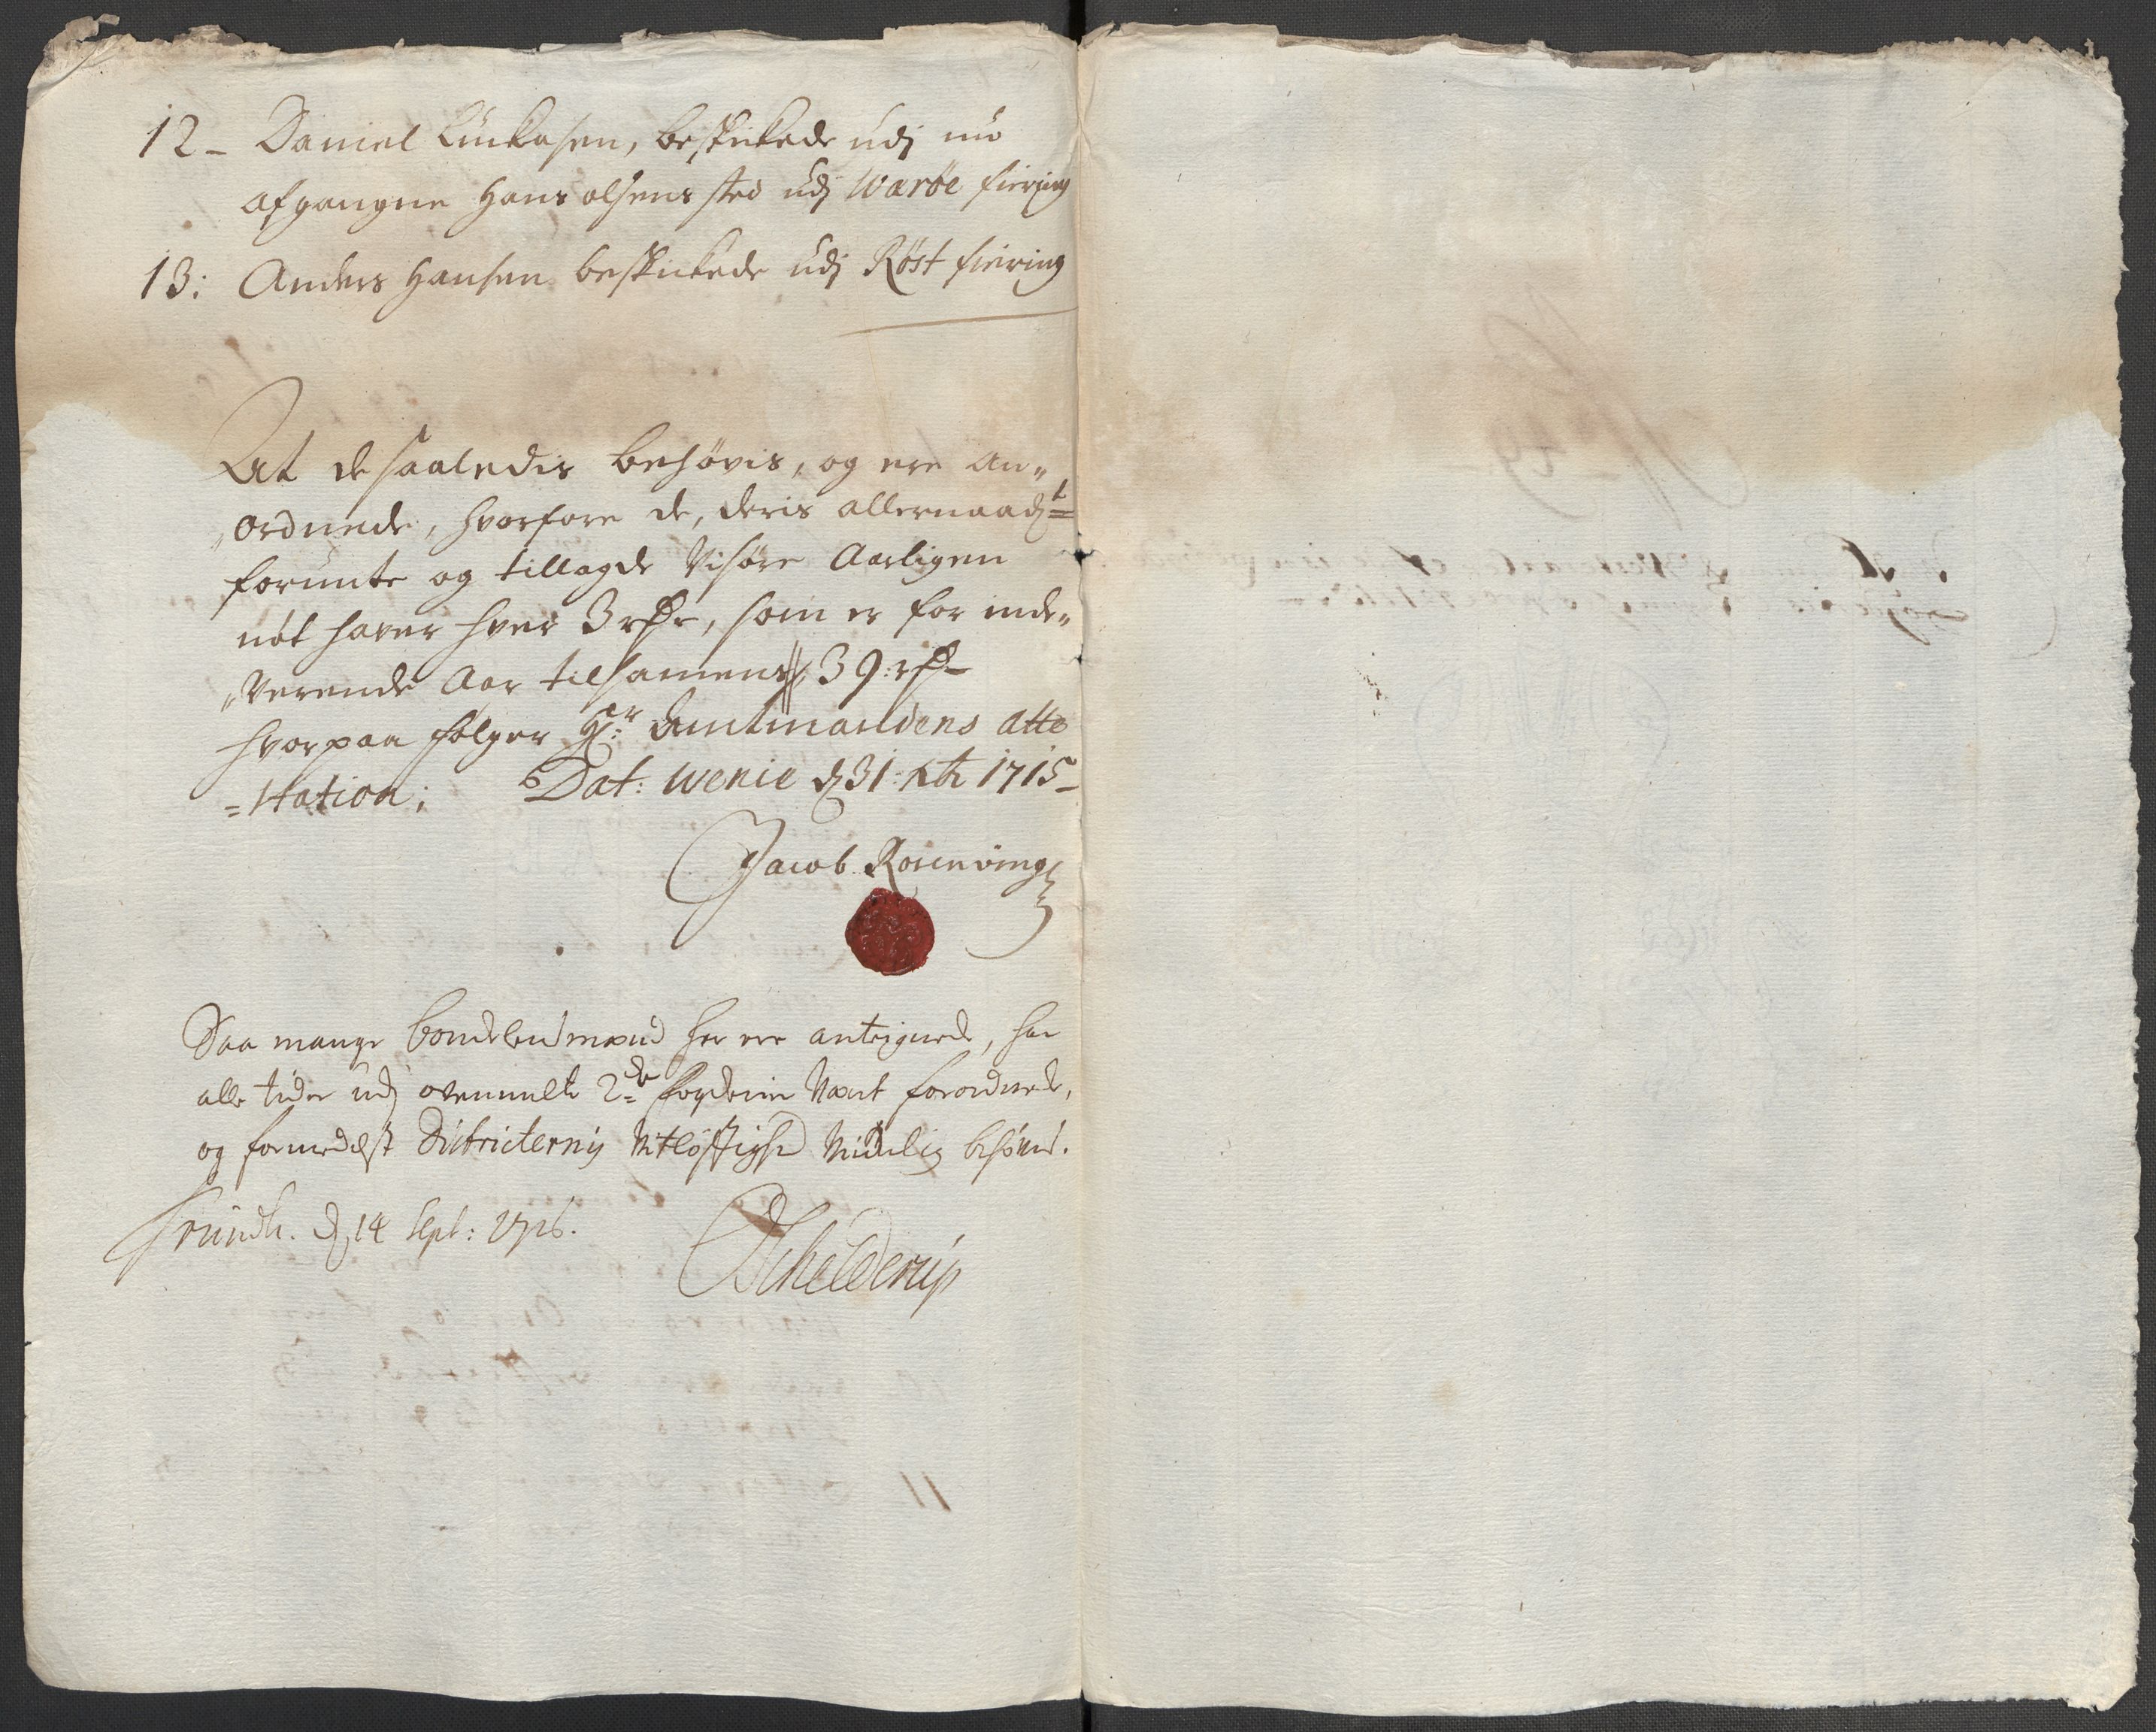 12 - Daniel Luckasen, beskickede udj nu
afgangne Hans olsens sted udj Warøe fiering
13: Anders Hansen beskickede udj Røst fiering
At de saaledis behøvis, og ere an„
„ordnede, hvorfore de, deris allernaadt=
forunte og tillagde Visøre Aarligen
nøt haver hver 3 rdr, som er for inde„
„verende Aar tilsamens 39: rdr
hvorpaa følger Hr: Amtmandens atte
=station; Dat: Wenie d 31: Xbr 1715
Jacob Rosenvinge
Saa mange bondelensmænd her ere antegnede, har
alle tider udj ovenmelte 2de fogderier været forordnede,
og formedelst Districternis vitløftighed behøves.
Trundh. d 14 Sept: 1716.
Schelderup